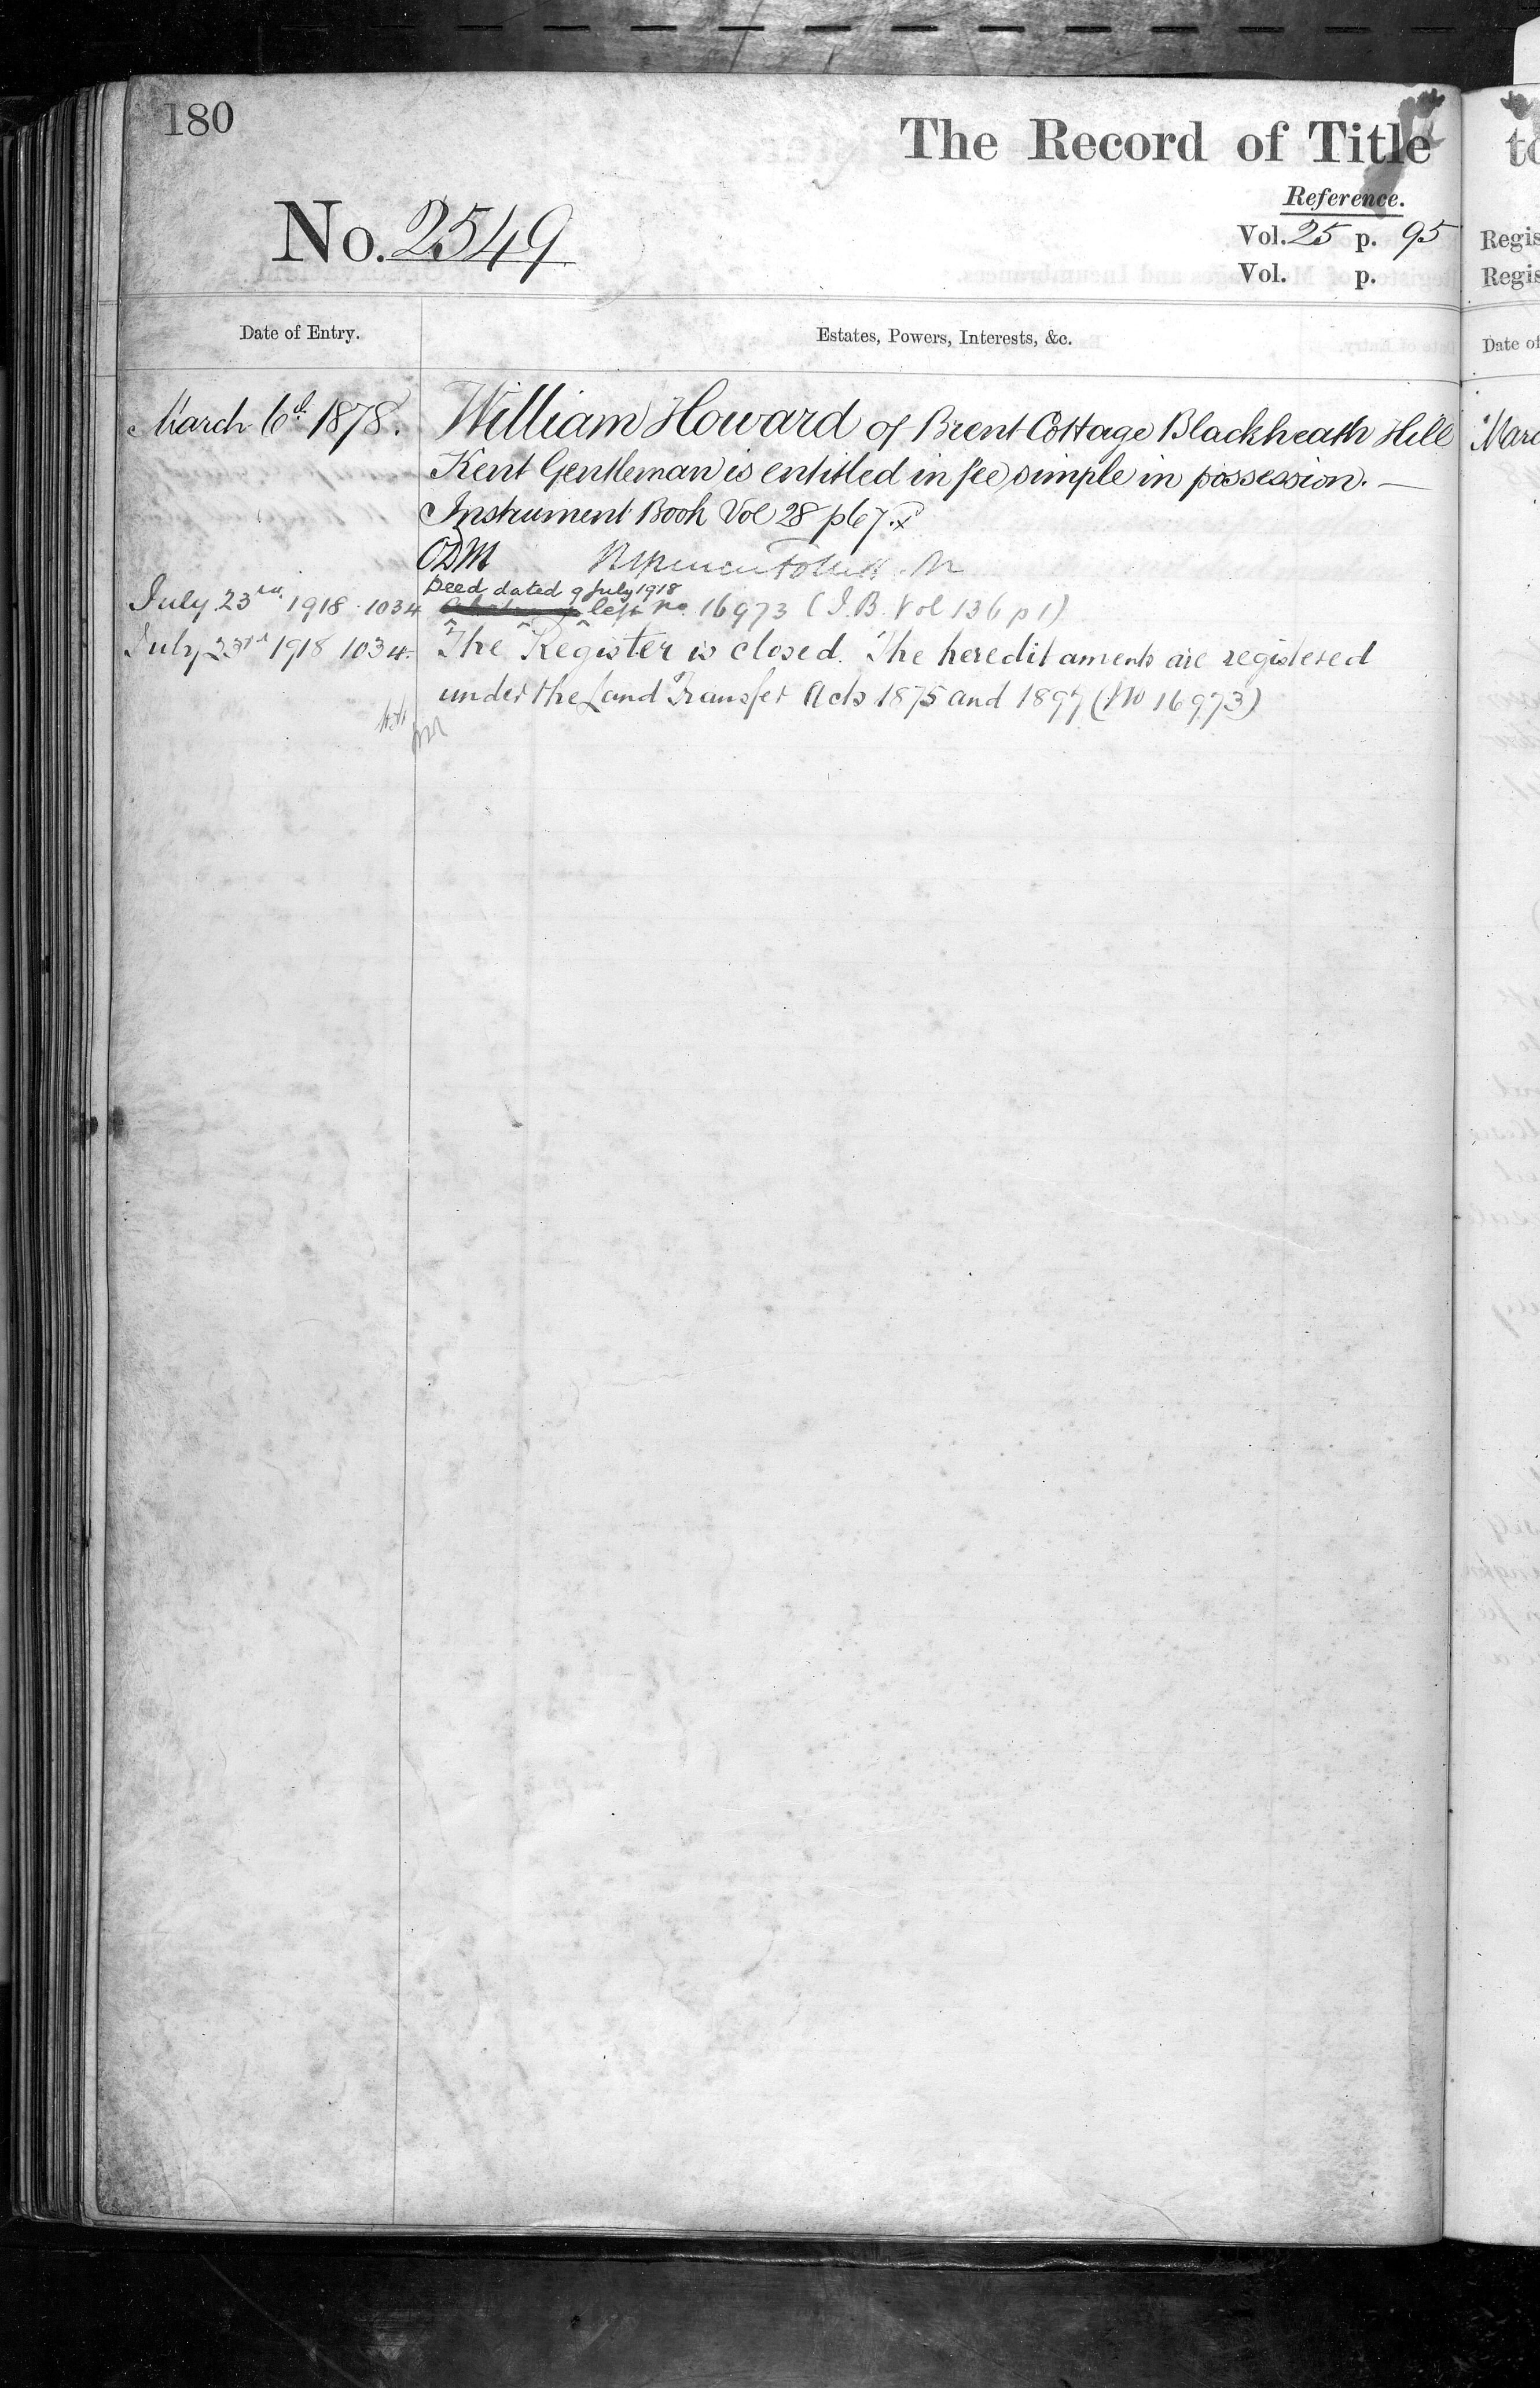 180
The Record of Title
Reference.
No. 2549
Vol. 25 p. 95
Vol. p.
Date of Entry.
Estates, Powers, Interests, &c.
March 6th 1878.
William Howard of Brent Cottage Blackheath Hill
Kent Gentleman is entitled in fee simple in possession. —
Instrument Book Vol 28 p 67.
ODM
Deed dated 9 July 1918
July 23rd 1918 1034
left no. 16973 (I.B. Vol 136 p 1)
July 23rd 1918 1034.
The Register is closed. The hereditaments are registered
under the Land Transfer Acts 1875 and 1897 (No 16973)
Regis
Regis
Date of
Marc